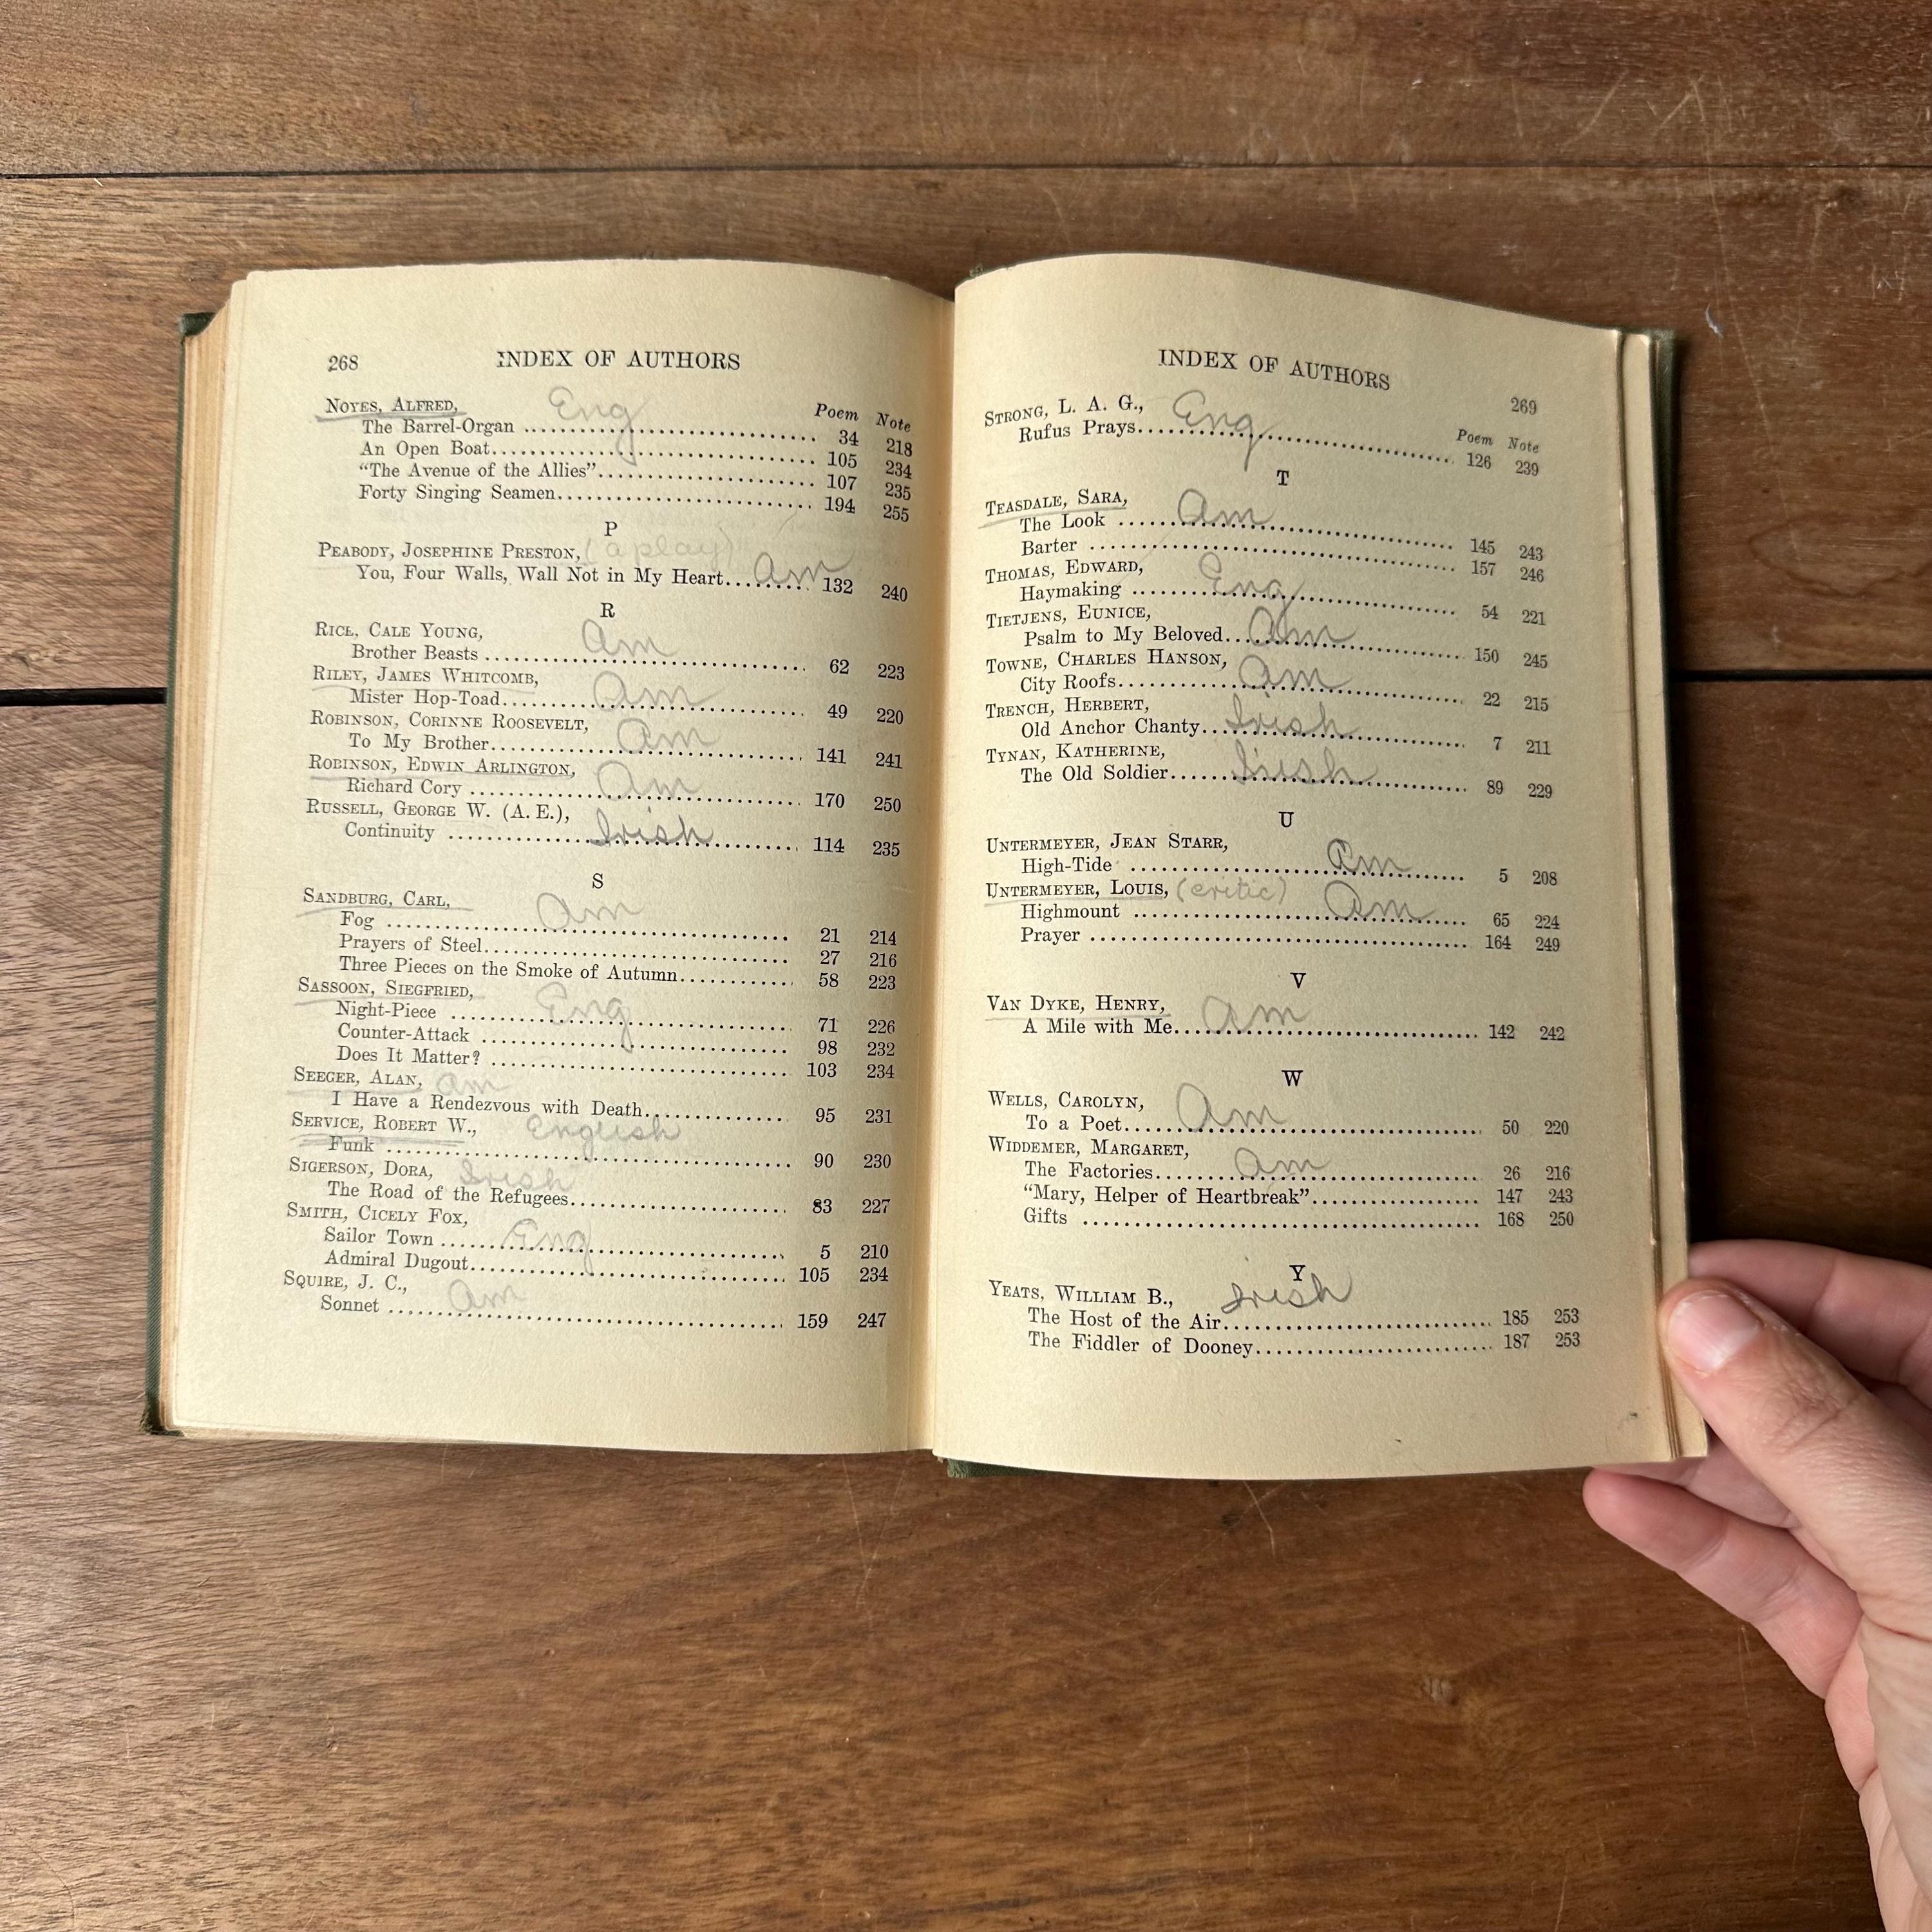 268 INDEX OF AUTHORS
Poem Note
NOYES, ALFRED, Eng
The Barrel-Organ ........ 34 218
An Open Boat........ 105 234
“The Avenue of the Allies”........ 107 235
Forty Singing Seamen........ 194 255
P
PEABODY, JOSEPHINE PRESTON, (a play)
You, Four Walls, Wall Not in My Heart........ Am 132 240
R
RICE, CALE YOUNG, Am
Brother Beasts ........ 62 223
RILEY, JAMES WHITCOMB, Am
Mister Hop-Toad........ 49 220
ROBINSON, CORINNE ROOSEVELT, Am
To My Brother........ 141 241
ROBINSON, EDWIN ARLINGTON, Am
Richard Cory ........ 170 250
RUSSELL, GEORGE W. (A. E.),
Continuity ........ Irish 114 235
S
SANDBURG, CARL, Am
Fog ........ 21 214
Prayers of Steel........ 27 216
Three Pieces on the Smoke of Autumn........ 58 223
SASSOON, SIEGFRIED, Eng
Night-Piece ........ 71 226
Counter-Attack ........ 98 232
Does It Matter? ........ 103 234
SEEGER, ALAN, Am
I Have a Rendezvous with Death........ 95 231
SERVICE, ROBERT W., English
Funk ........ 90 230
SIGERSON, DORA, Irish
The Road of the Refugees........ 83 227
SMITH, CICELY FOX,
Sailor Town ........ Eng 5 210
Admiral Dugout........ 105 234
SQUIRE, J. C., Am
Sonnet ........ 159 247
INDEX OF AUTHORS 269
Poem Note
STRONG, L. A. G., Eng
Rufus Prays........ 126 239
T
TEASDALE, SARA, Am
The Look ........ 145 243
Barter ........ 157 246
THOMAS, EDWARD, Eng
Haymaking ........ 54 221
TIETJENS, EUNICE,
Psalm to My Beloved........ Am 150 245
TOWNE, CHARLES HANSON, Am
City Roofs........ 22 215
TRENCH, HERBERT,
Old Anchor Chanty........ Irish 7 211
TYNAN, KATHERINE,
The Old Soldier........ Irish 89 229
U
UNTERMEYER, JEAN STARR, Am
High-Tide ........ 5 208
UNTERMEYER, LOUIS, (critic) Am
Highmount ........ 65 224
Prayer ........ 164 249
V
VAN DYKE, HENRY, Am
A Mile with Me........ 142 242
W
WELLS, CAROLYN, Am
To a Poet........ 50 220
WIDDEMER, MARGARET,
The Factories........ Am 26 216
“Mary, Helper of Heartbreak”........ 147 243
Gifts ........ 168 250
Y
YEATS, WILLIAM B., Irish
The Host of the Air........ 185 253
The Fiddler of Dooney........ 187 253